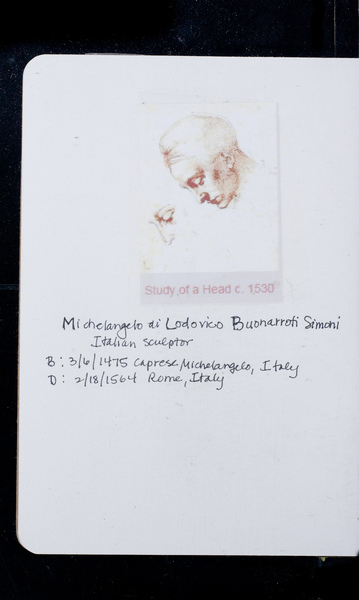 Study of a Head c. 1530
Michelangelo di Lodovico Buonarroti Simoni
Italian sculptor
B: 3/6/1475 Caprese Michelangelo, Italy
D: 2/18/1564 Rome, Italy